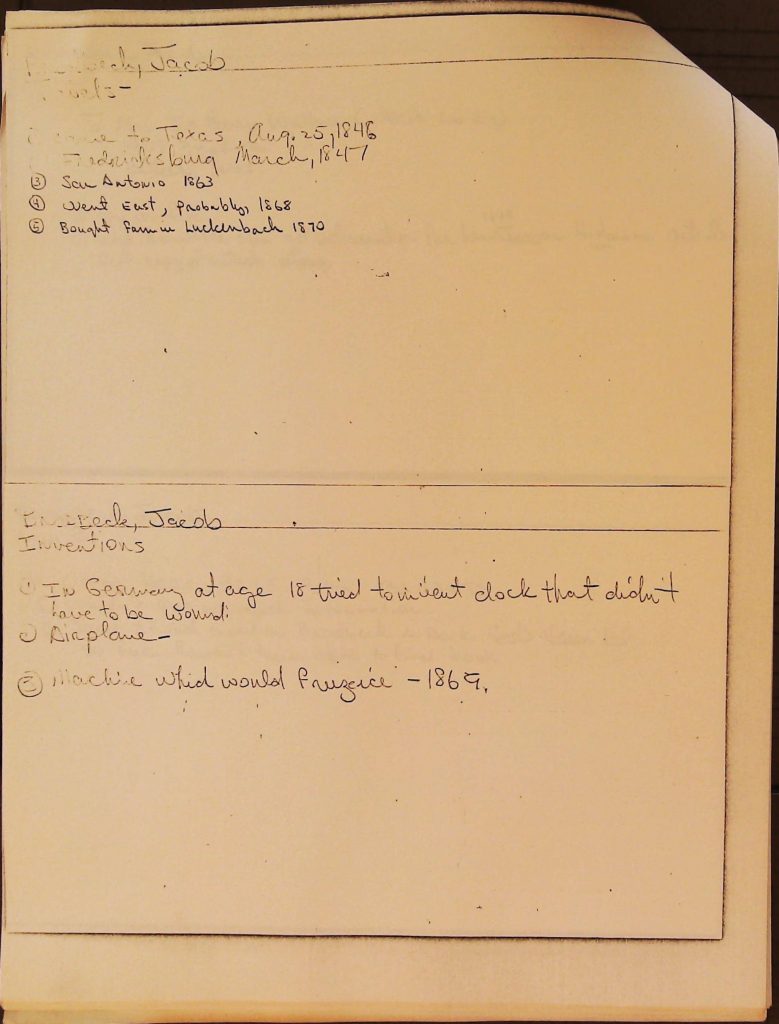 Jacob
① came to Texas, Aug. 25, 1846
Fredricksburg March, 1847
③ San Antonio 1863
④ Went East, probably, 1868
⑤ Bought Farm in Luckenbach 1870
Brodbeck, Jacob
Inventions
① In Germany at age 18 tried to invent clock that didn't
have to be wound.
② Airplane-
③ Machine which would Fruzeice - 1869.